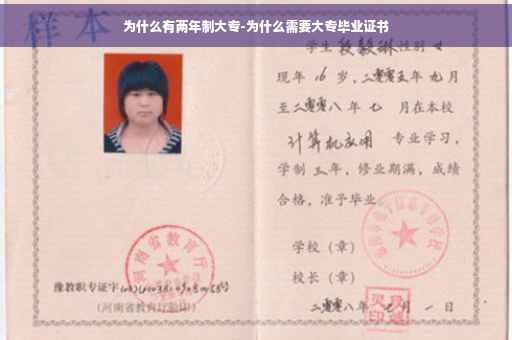 为什么有两年制大专-为什么需要大专毕业证书
样本
学生段毅琳性别女
现年16岁,二零零五年九月
至二零零八年七月在本校
计算机应用 专业学习,
学制三年,修业期满,成绩
合格,准予毕业
学校(章)
校长(章)
二零零八年七月一日
河南省教育厅
豫教职专证字
(河南省教育厅验印)